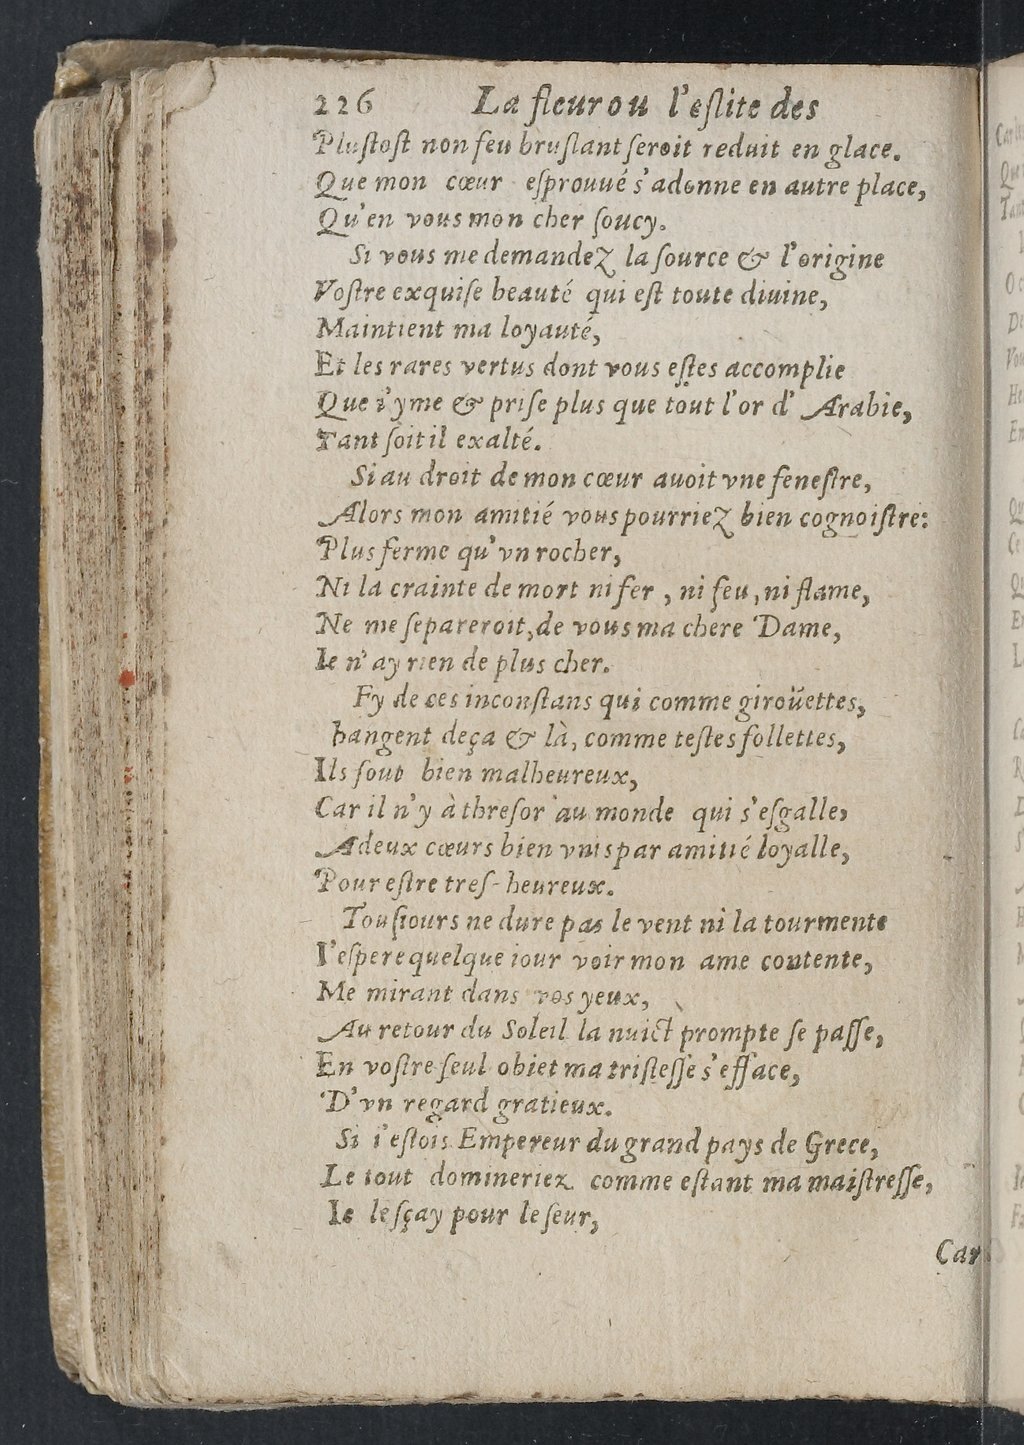 226 La fleur ou l'eſlite des
Pluſtoſt non feu bruſlant ſeroit reduit en glace.
Que mon cœur eſprouué s'adonne en autre place,
Qu'en vous mon cher ſoucy.
Si vous me demandeZ la ſource & l'origine
Voſtre exquiſe beauté qui eſt toute diuine,
Maintient ma loyauté,
Et les rares vertus dont vous eſtes accomplie
Que i'yme & priſe plus que tout l'or d' Arabie,
Tant ſoit il exalté.
Si au droit de mon cœur auoit vne feneſtre,
Alors mon amitié vous pourrieZ bien cognoiſtre:
Plus ferme qu'vn rocher,
Ni la crainte de mort ni fer , ni feu, ni flame,
Ne me ſepareroit, de vous ma chere Dame,
Ie n'ay rien de plus cher.
Fy de ces inconſtans qui comme giroüettes,
hangent deça & là, comme teſtes follettes,
Ils ſout bien malheureux,
Car il n'y à threſor au monde qui s'eſgalle,
A deux cœurs bien vnis par amitié loyalle,
Pour eſtre treſ-heureux.
Touſiours ne dure pas le vent ni la tourmente
I'eſpere quelque iour voir mon ame contente,
Me mirant dans vos yeux,
Au retour du Soleil la nuict prompte ſe paſſe,
En voſtre ſeul obiet ma triſteſſe s'efface,
D'vn regard gratieux.
Si i'eſtois Empereur du grand pays de Grece,
Le tout domineriez comme eſtant ma maiſtreſſe,
Ie le ſçay pour le ſeur,
Car